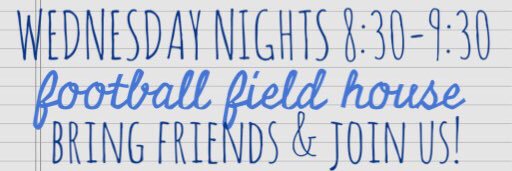 WEDNESDAY NIGHTS 8:30-9:30
football field house
BRING FRIENDS & JOIN US!